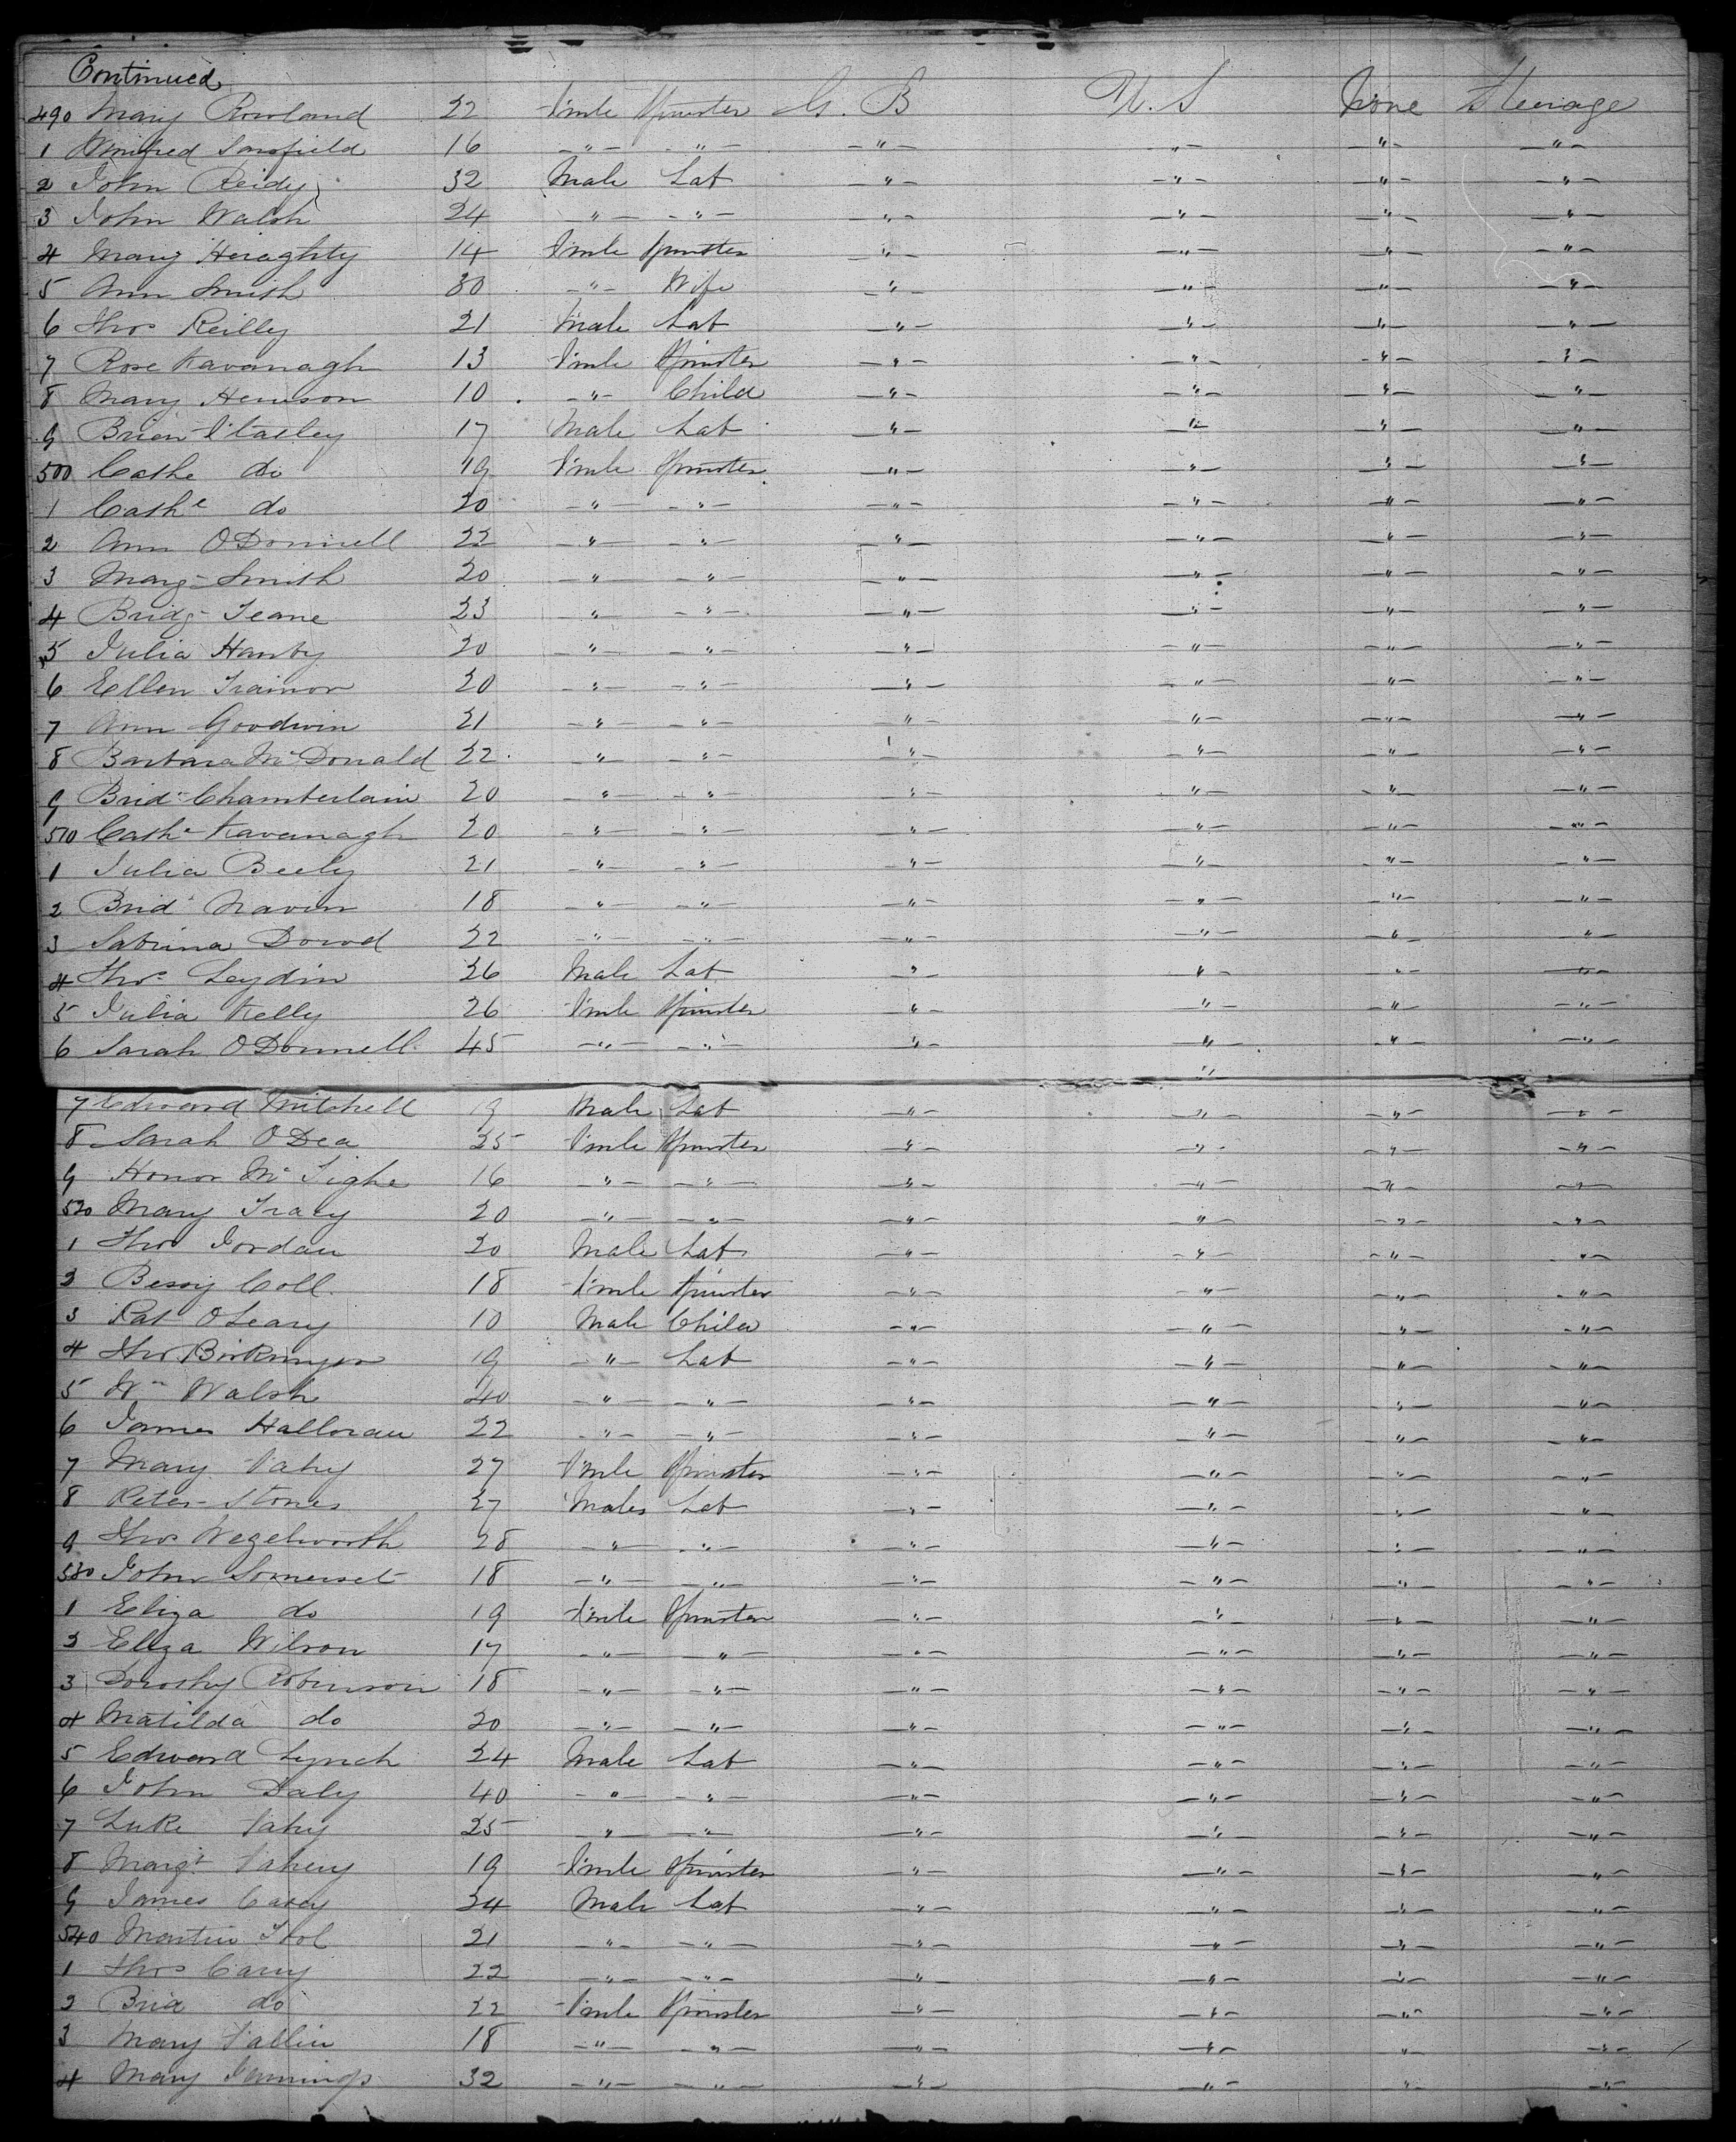 Continued
490 Mary Rowland 22 F'mle Spinster G. B U. S None Steerage
1 Winifred Sarsfield 16 -"- -"- -"- -"- -"- -"-
2 John Reidy 32 Male Lab -"- -"- -"- -"-
3 John Walsh 24 -"- -"- -"- -"- -"- -"-
4 Mary Heraghty 14 F'mle Spinster -"- -"- -"- -"-
5 Ann Smith 30 -"- Wife -"- -"- -"- -"-
6 Thos Reilly 21 Male Lab -"- -"- -"- -"-
7 Rose Kavanagh 13 F'mle Spinster -"- -"- -"- -"-
8 Mary Hewson 10 -"- Child -"- -"- -"- -"-
9 Brien 17 Male Lab -"- -"- -"- -"-
500 Cathe do 19 F'mle Spinster -"- -"- -"- -"-
1 Cathe do 20 -"- -"- -"- -"- -"- -"-
2 Ann O'Donnell 22 -"- -"- -"- -"- -"- -"-
3 Marg Smith 20 -"- -"- -"- -"- -"- -"-
4 Bridg Teane 23 -"- -"- -"- -"- -"- -"-
5 Julia Hanby 20 -"- -"- -"- -"- -"- -"-
6 Ellen Trainor 20 -"- -"- -"- -"- -"- -"-
7 Ann Goodwin 21 -"- -"- -"- -"- -"- -"-
8 Barbara McDonald 22 -"- -"- -"- -"- -"- -"-
9 Brid Chamberlain 20 -"- -"- -"- -"- -"- -"-
510 Cathe Kavanagh 20 -"- -"- -"- -"- -"- -"-
1 Julia Beely 21 -"- -"- -"- -"- -"- -"-
2 Brid Navin 18 -"- -"- -"- -"- -"- -"-
3 Sabrina Dowd 22 -"- -"- -"- -"- -"- -"-
4 Thos Leydin 26 Male Lab -"- -"- -"- -"-
5 Julia Kelly 26 F'mle Spinster -"- -"- -"- -"-
6 Sarah O'Donnell 45 -"- -"- -"- -"- -"- -"-
7 Edward Mitchell 19 Male Lab -"- -"- -"- -"-
8 Sarah O'Dea 35 F'mle Spinster -"- -"- -"- -"-
9 Honor McTighe 16 -"- -"- -"- -"- -"- -"-
520 Mary Tracy 20 -"- -"- -"- -"- -"- -"-
1 Thos Jordan 20 Male Lab -"- -"- -"- -"-
2 Bessy Coll 18 F'mle Spinster -"- -"- -"- -"-
3 Pat O'Leary 10 Male Child -"- -"- -"- -"-
4 Thos 19 -"- Lab -"- -"- -"- -"-
5 Wm Walsh 40 -"- -"- -"- -"- -"- -"-
6 James Halloran 22 -"- -"- -"- -"- -"- -"-
7 Mary Fahy 27 F'mle Spinster -"- -"- -"- -"-
8 Peter Stones 27 Males Lab -"- -"- -"- -"-
9 Thos Wegelworth 28 -"- -"- -"- -"- -"- -"-
530 John Somerset 18 -"- -"- -"- -"- -"- -"-
1 Eliza do 19 F'mle Spinster -"- -"- -"- -"-
2 Eliza Wilson 17 -"- -"- -"- -"- -"- -"-
3 Dorothy Robinson 18 -"- -"- -"- -"- -"- -"-
4 Matilda do 20 -"- -"- -"- -"- -"- -"-
5 Edward Lynch 24 Male Lab -"- -"- -"- -"-
6 John Daly 40 -"- -"- -"- -"- -"- -"-
7 Luke Fahy 25 -"- -"- -"- -"- -"- -"-
8 Margt Fahey 19 F'mle Spinster -"- -"- -"- -"-
9 James Casey 24 Male Lab -"- -"- -"- -"-
540 Martin 21 -"- -"- -"- -"- -"- -"-
1 Thos Carry 22 -"- -"- -"- -"- -"- -"-
2 Brid do 22 F'mle Spinster -"- -"- -"- -"-
3 Mary Fallin 18 -"- -"- -"- -"- -"- -"-
4 Mary Jennings 32 -"- -"- -"- -"- -"- -"-